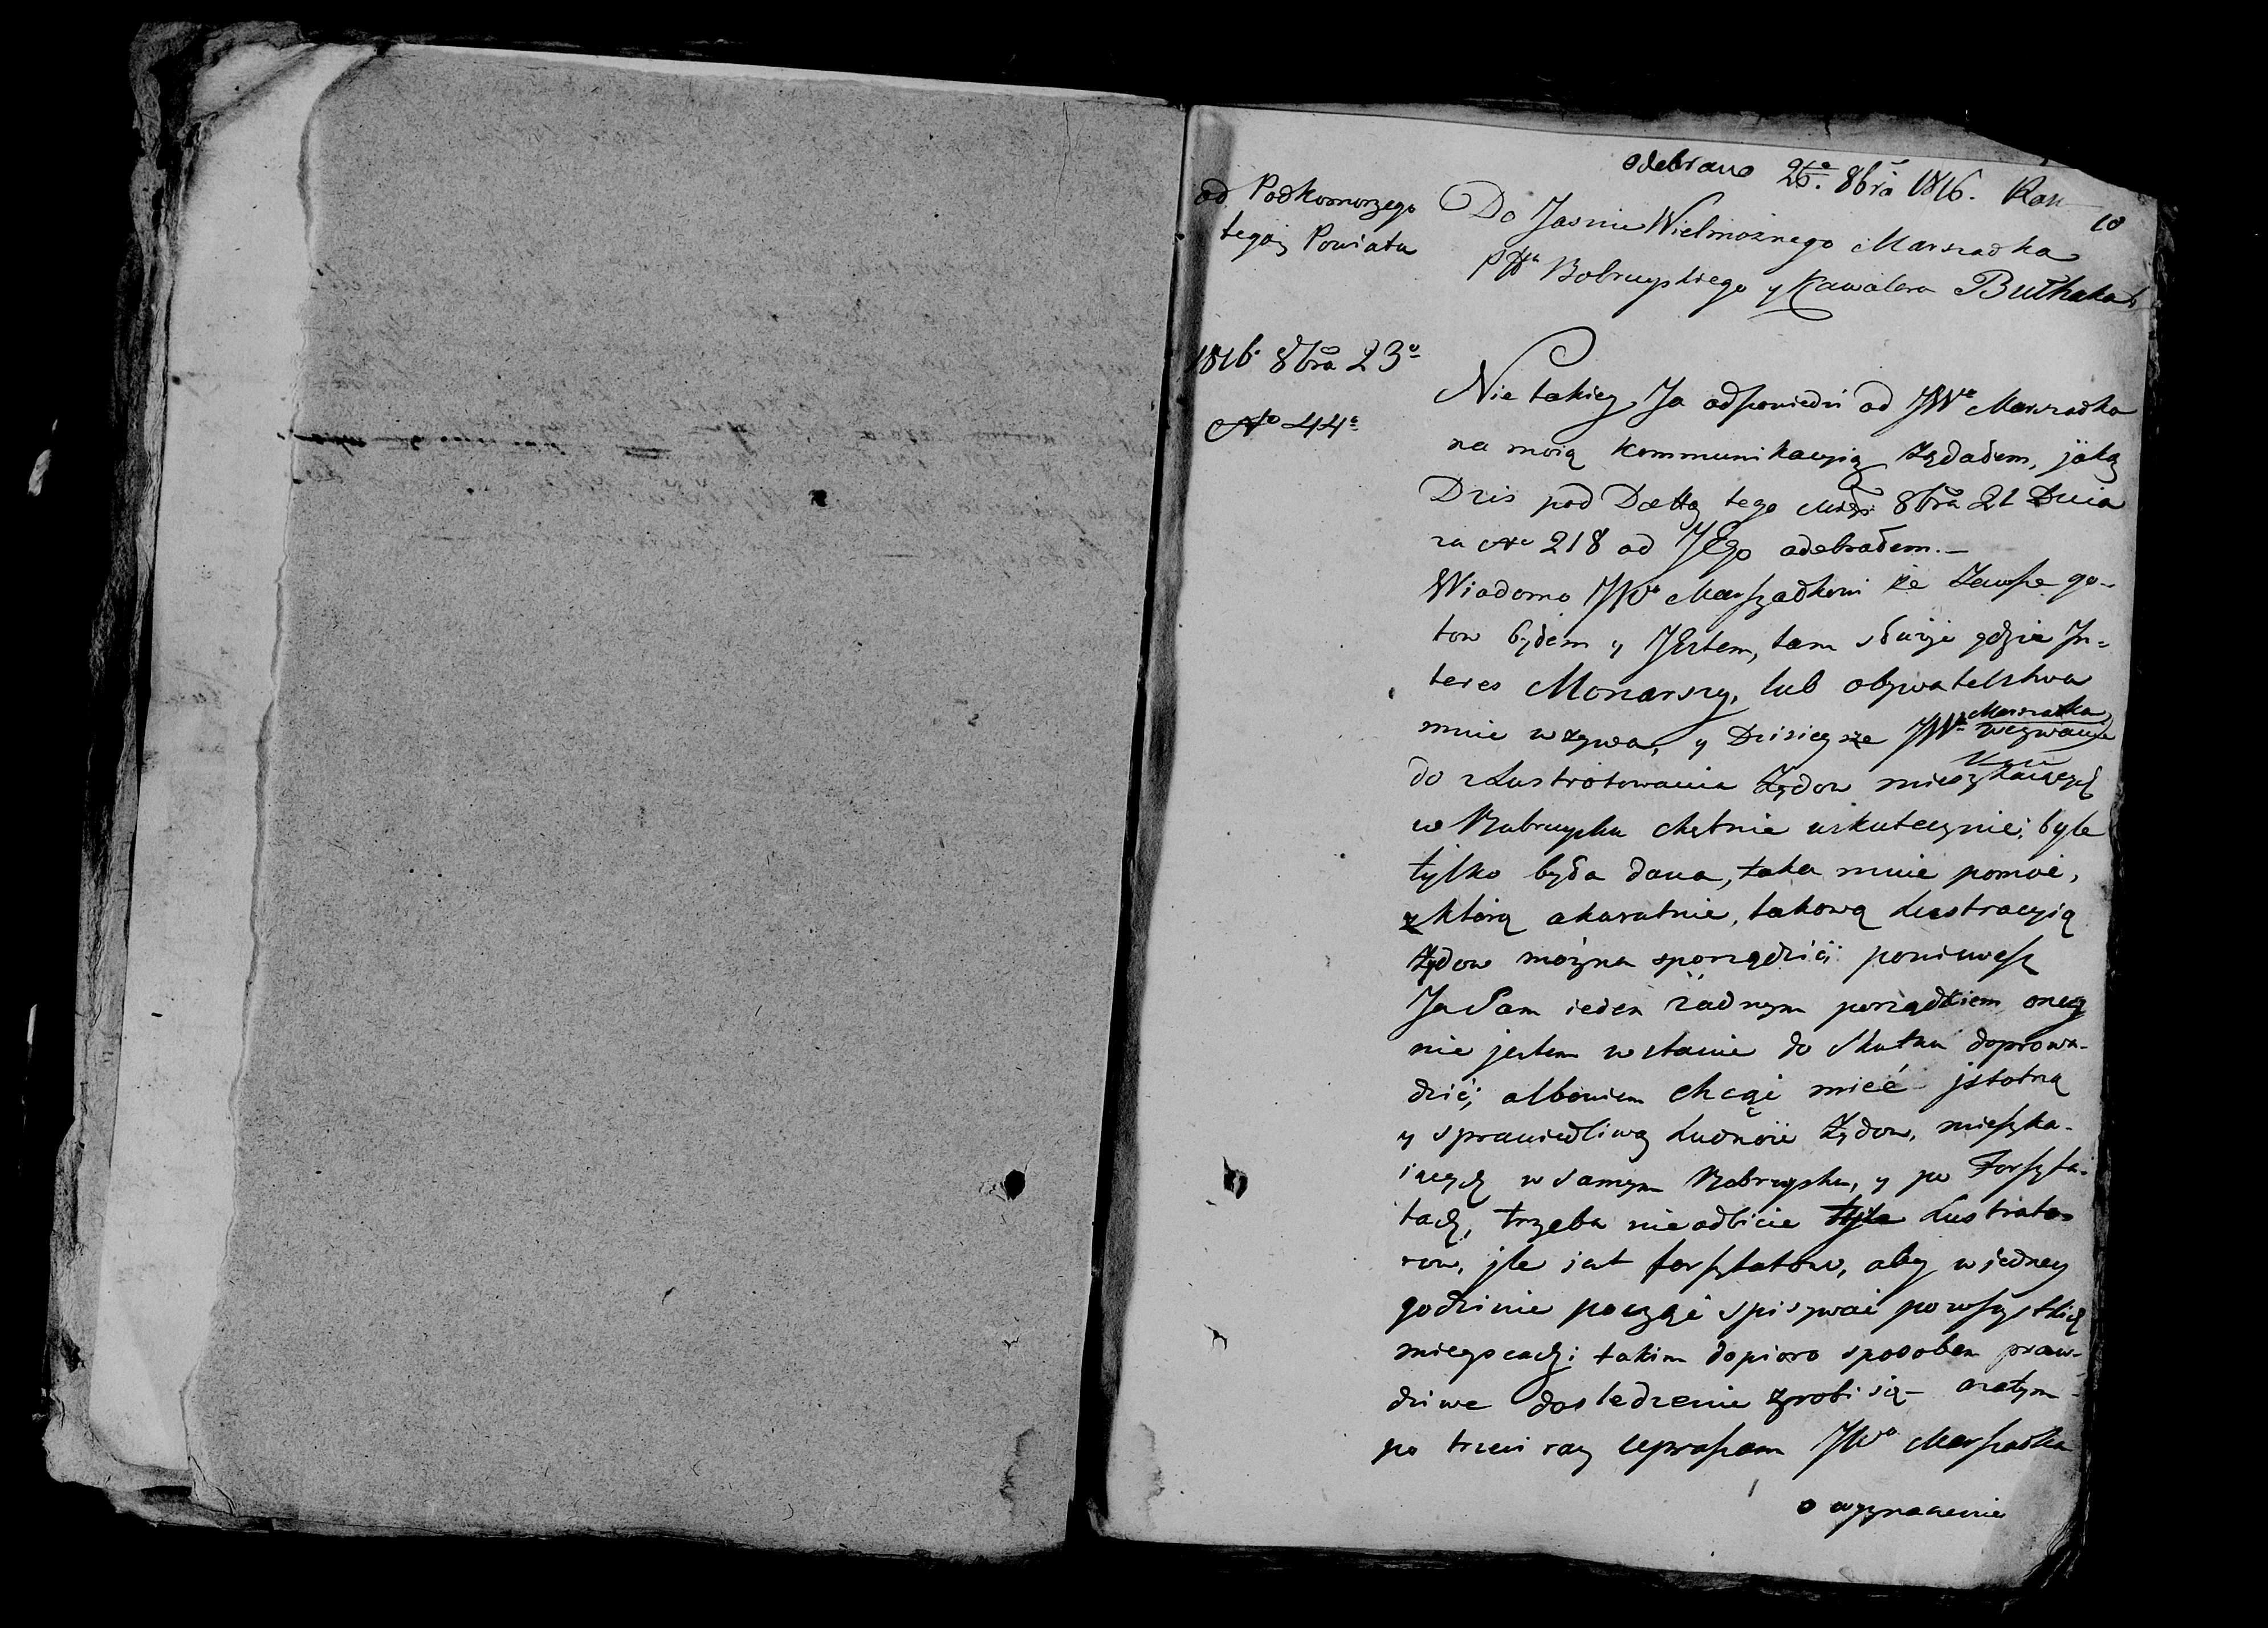 odebrano 26.o 8bra 1816. Ran
10
od Podkomorzego
tegoż Powiatu
Do Jasnie Wielmożnego Marszadka
Pttu Bobruyskiego y Kawalera Bułhaka
1816 8bra 23o
No 44o
Nie takiey Ja odpowiedzi od JWo Marszadka
na moią kommunikacyią żądadem, jaką
Dzis pod Dattą tego Msca 8bra 21 Dnia
za No 218 od JEgo odebradem.—
Wiadomo JWo Marszadkowi że zawsze go-
tow bydem y JEstem, tam sdużyć gdzie In-
teres Monarszy, lub obywatelstwa
mnie wzywa, y Dzisieysze JWo Marszadka wezwanie
do zLustrotowania Żydow mieszkaiących
w Bobruysku chętnie uskutecznie; byle
tylko byda dana, taka mnie pomoc,
z ktorą akuratnie, takową Lustracyią
Żydow można sporządzić; poniewasz
Ja Sam ieden żadnym porządkiem oney
nie jestem wstanie do Skutku doprowa-
dzić; albowiem chcąc mieć jstotną
y sprawiedliwą Ludność Żydow, mieszka-
iących w Samym Bobruysku, y po Forszta-
tach, trzeba nieodbicie tyle Lustrato-
row, jle jest forsztatow, aby w jedney
godzinie począć spisywać powszystkich
mieyscach; takim dopiero sposobem praw-
dziwe dosledzenie zrobi się — azatym
po trzeci raz upraszam JWo Marszadka
o wyznaczenie